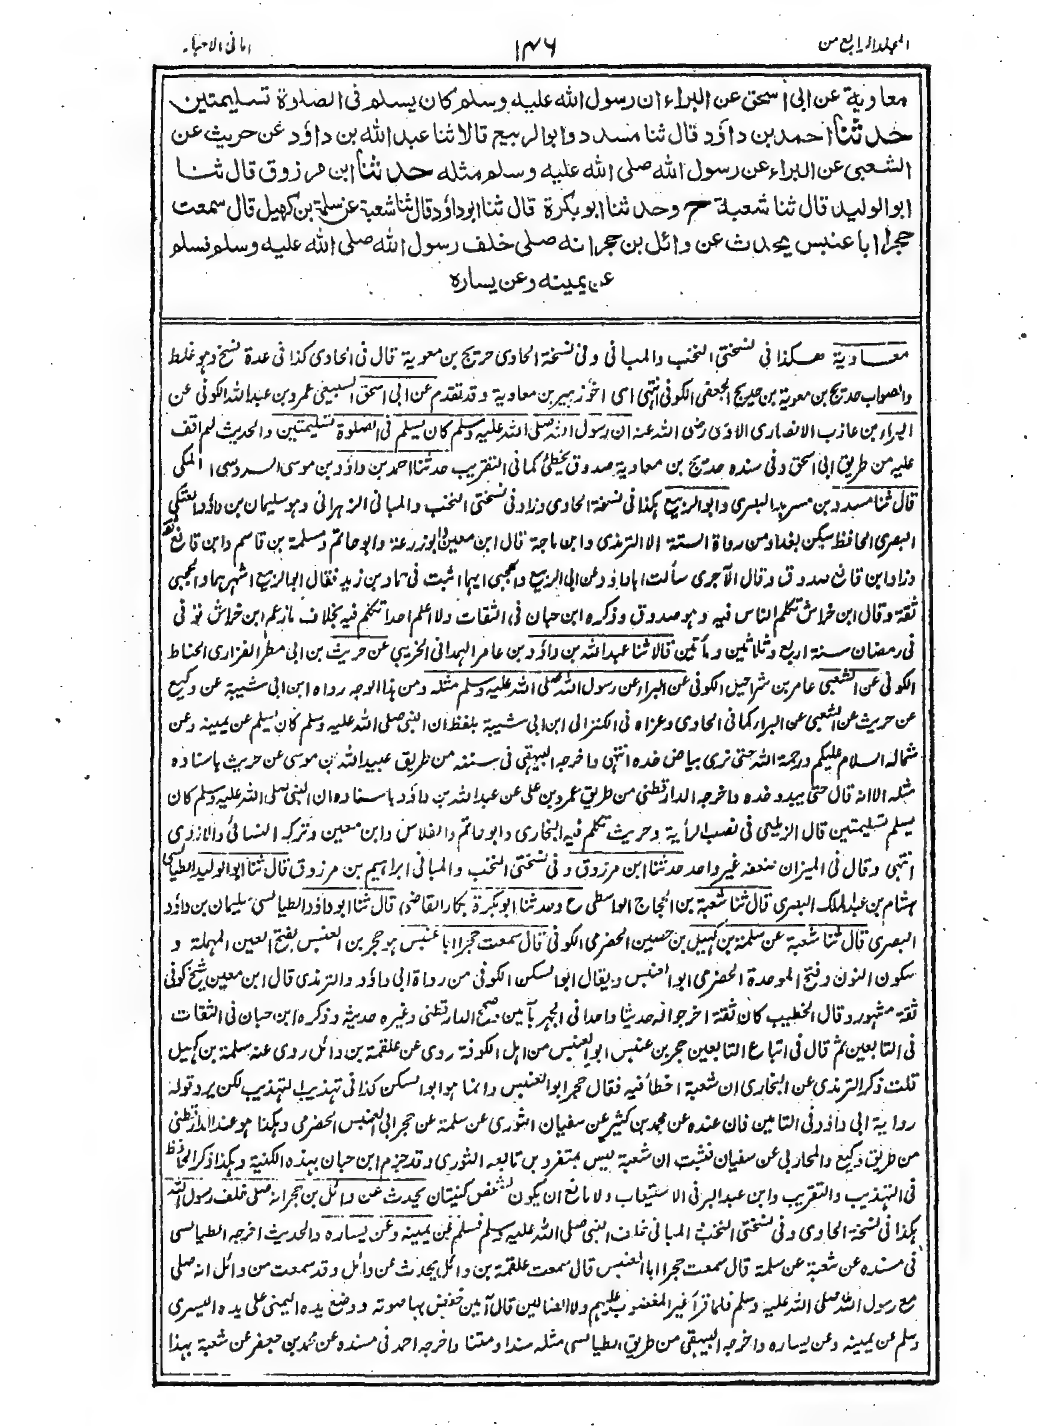 المجلد الرابع من
١٤٦
امانی الاحبار
معاوية عن ابی اسحٰق عن البراء ان رسول الله صلی الله علیه وسلم كان يسلم فی الصلوة تسليمتين
حدثنا احمد بن داؤد قال ثنا مسدد وابو الربيع قالا ثنا عبد الله بن داؤد عن حريث عن
الشعبی عن البراء عن رسول الله صلی الله علیه وسلم مثله حدثنا ابن مرزوق قال ثنا
ابو الوليد قال ثنا شعبة ح وحدثنا ابو بكرة قال ثنا ابو داؤد قال ثنا شعبة عن سلمة بن كهيل قال سمعت
حجرا ابا عنبس يحدث عن وائل بن حجر انه صلی خلف رسول الله صلی الله علیه وسلم فسلم
عن يمينه وعن يساره
معاوية هكذا فی نسختی النخب والمبانی وفی نسخة الحاوی حريج بن معوية قال فی الحاوی كذا فی عدة نسخ وهو غلط
والصواب حديج بن معوية بن حديج الجعفی الكوفی انتهی اسی اخو زهير بن معاوية وقد تقدم عن ابی اسحق السبيعی عمرو بن عبد الله الكوفی عن
البراء بن عازب الانصاری الاوسی رضی الله عنه ان رسول الله صلی الله علیه وسلم كان يسلم فی الصلوة تسليمتين والحديث لم اقف
عليه من طريق ابی اسحق وفی سنده حديج بن معاوية صدوق يخطئ كما فی التقريب حدثنا احمد بن داؤد بن موسی السدوسی المكی
قال ثنا مسدد بن مسرهد البصری وابو الربيع هكذا فی نسخة الحاوی وزاد فی نسختی النخب والمبانی الزهرانی وهو سليمان بن داؤد العتكی
البصری الحافظ سكن بغداد من رواة الستة الا الترمذی وابن ماجة قال ابن معين وابو زرعة وابو حاتم ومسلمة بن قاسم وابن قانع ثقة
وزاد ابن قانع صدوق وقال الآجری سألت ابا داؤد عن ابی الربيع والحجبی ايهما اثبت فی حماد بن زيد فقال ابو الربيع اشهرهما والحجبی
ثقة وقال ابن خراش تكلم الناس فيه وهو صدوق وذكره ابن حبان فی الثقات ولا اعلم احدا تكلم فيه بخلاف ما زعم ابن خراش توفی
فی رمضان سنة اربع وثلاثين ومأتين قالا ثنا عبد الله بن داؤد بن عامر الهمدانی الخريبی عن حريث بن ابی مطر الفزاری الحناط
الكوفی عن الشعبی عامر بن شراحيل الكوفی عن البراء عن رسول الله صلی الله علیه وسلم مثله ومن هذا الوجه رواه ابن ابی شيبة عن وكيع
عن حريث عن الشعبی عن البراء كما فی الحاوی وعزاه فی الكنز الی ابن ابی شيبة بلفظ ان النبی صلی الله علیه وسلم كان يسلم عن يمينه وعن
شماله السلام عليكم ورحمة الله حتی نری بياض خده انتهی واخرجه البيهقی فی سننه من طريق عبيد الله بن موسی عن حريث باسناده
مثله الا انه قال حتی يبدو خده واخرجه الدارقطنی من طريق عمرو بن علی عن عبد الله بن داؤد باسناده ان النبی صلی الله علیه وسلم كان
يسلم تسليمتين قال الزيلعی فی نصب الرأية وحريث تكلم فيه البخاری وابو حاتم والفلاس وابن معين وتركه النسائی والازدی
انتهی وقال فی الميزان ضعفه غير واحد حدثنا ابن مرزوق وفی نسختی النخب والمبانی ابراهيم بن مرزوق قال ثنا ابو الوليد الطيالسی
هشام بن عبد الملك البصری قال ثنا شعبة بن الحجاج الواسطی ح وحدثنا ابو بكرة بكار القاضی قال ثنا ابو داؤد الطيالسی سليمان بن داؤد
البصری قال ثنا شعبة عن سلمة بن كهيل بن حصين الحضرمی الكوفی قال سمعت حجرا ابا عنبس هو حجر بن العنبس بفتح العين المهملة و
سكون النون وفتح الموحدة الحضرمی ابو العنبس ويقال ابو السكن الكوفی من رواة ابی داؤد والترمذی قال ابن معين شيخ كوفی
ثقة مشهور وقال الخطيب كان ثقة اخرجوا له حديثا واحدا فی الجهر بآمين وصحح الدارقطنی وغيره حديثه وذكره ابن حبان فی الثقات
فی التابعين ثم قال فی اتباع التابعين حجر بن عنبس ابو العنبس من اهل الكوفة روی عن علقمة بن وائل روی عنه سلمة بن كهيل
قلت ذكر الترمذی عن البخاری ان شعبة اخطأ فيه فقال حجر ابو العنبس وانما هو ابو السكن كذا فی تهذيب التهذيب لكن يرد قوله
رواية ابی داؤد فی التامين فان عنده عن محمد بن كثير عن سفيان الثوری عن سلمة عن حجر ابی العنبس الحضرمی وهكذا هو عند الدارقطنی
من طريق وكيع والمحاربی عن سفيان فثبت ان شعبة ليس متفرد بل تابعه الثوری وقد جزم ابن حبان بهذه الكنية وهكذا ذكر الحافظ
فی التهذيب والتقريب وابن عبد البر فی الاستيعاب ولا مانع ان يكون لشخص كنيتان يحدث عن وائل بن حجر انه صلی خلف رسول الله
هكذا فی نسخة الحاوی وفی نسختی النخب والمبانی خلف النبی صلی الله علیه وسلم فسلم عن يمينه وعن يساره والحديث اخرجه الطيالسی
فی مسنده عن شعبة عن سلمة قال سمعت حجرا ابا العنبس قال سمعت علقمة بن وائل يحدث عن وائل وقد سمعت من وائل انه صلی
مع رسول الله صلی الله علیه وسلم فلما قرأ غير المغضوب عليهم ولا الضالين قال آمين خفض بها صوته ووضع يده اليمنی علی يده اليسری
وسلم عن يمينه وعن يساره واخرجه البيهقی من طريق الطيالسی مثله سندا ومتنا واخرجه احمد فی مسنده عن محمد بن جعفر عن شعبة بهذا